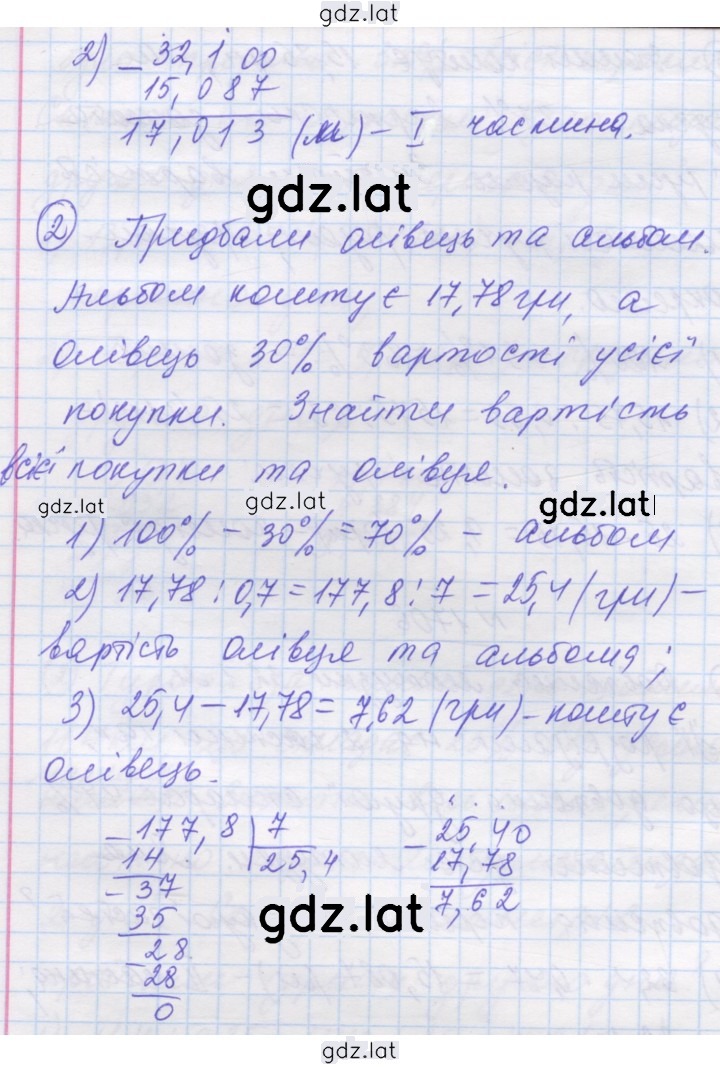 gdz.lat
2) - 32,100
15,087
17,013 (м) - I частина.
gdz.lat
2 Придбали олівець та альбом.
Альбом коштує 17,78 грн, а
олівець 30% вартості усієї
покупки. Знайти вартість
всієї покупки та олівця.
gdz.lat gdz.lat gdz.lat
1) 100% - 30% = 70% - альбом
2) 17,78 : 0,7 = 177,8 : 7 = 25,4 (грн) -
вартість олівця та альбома;
3) 25,4 - 17,78 = 7,62 (грн) - коштує
олівець.
- 177,8 | 7 - 25,40
14 25,4 17,78
- 37 7,62
35
gdz.lat
- 28
28
0
gdz.lat